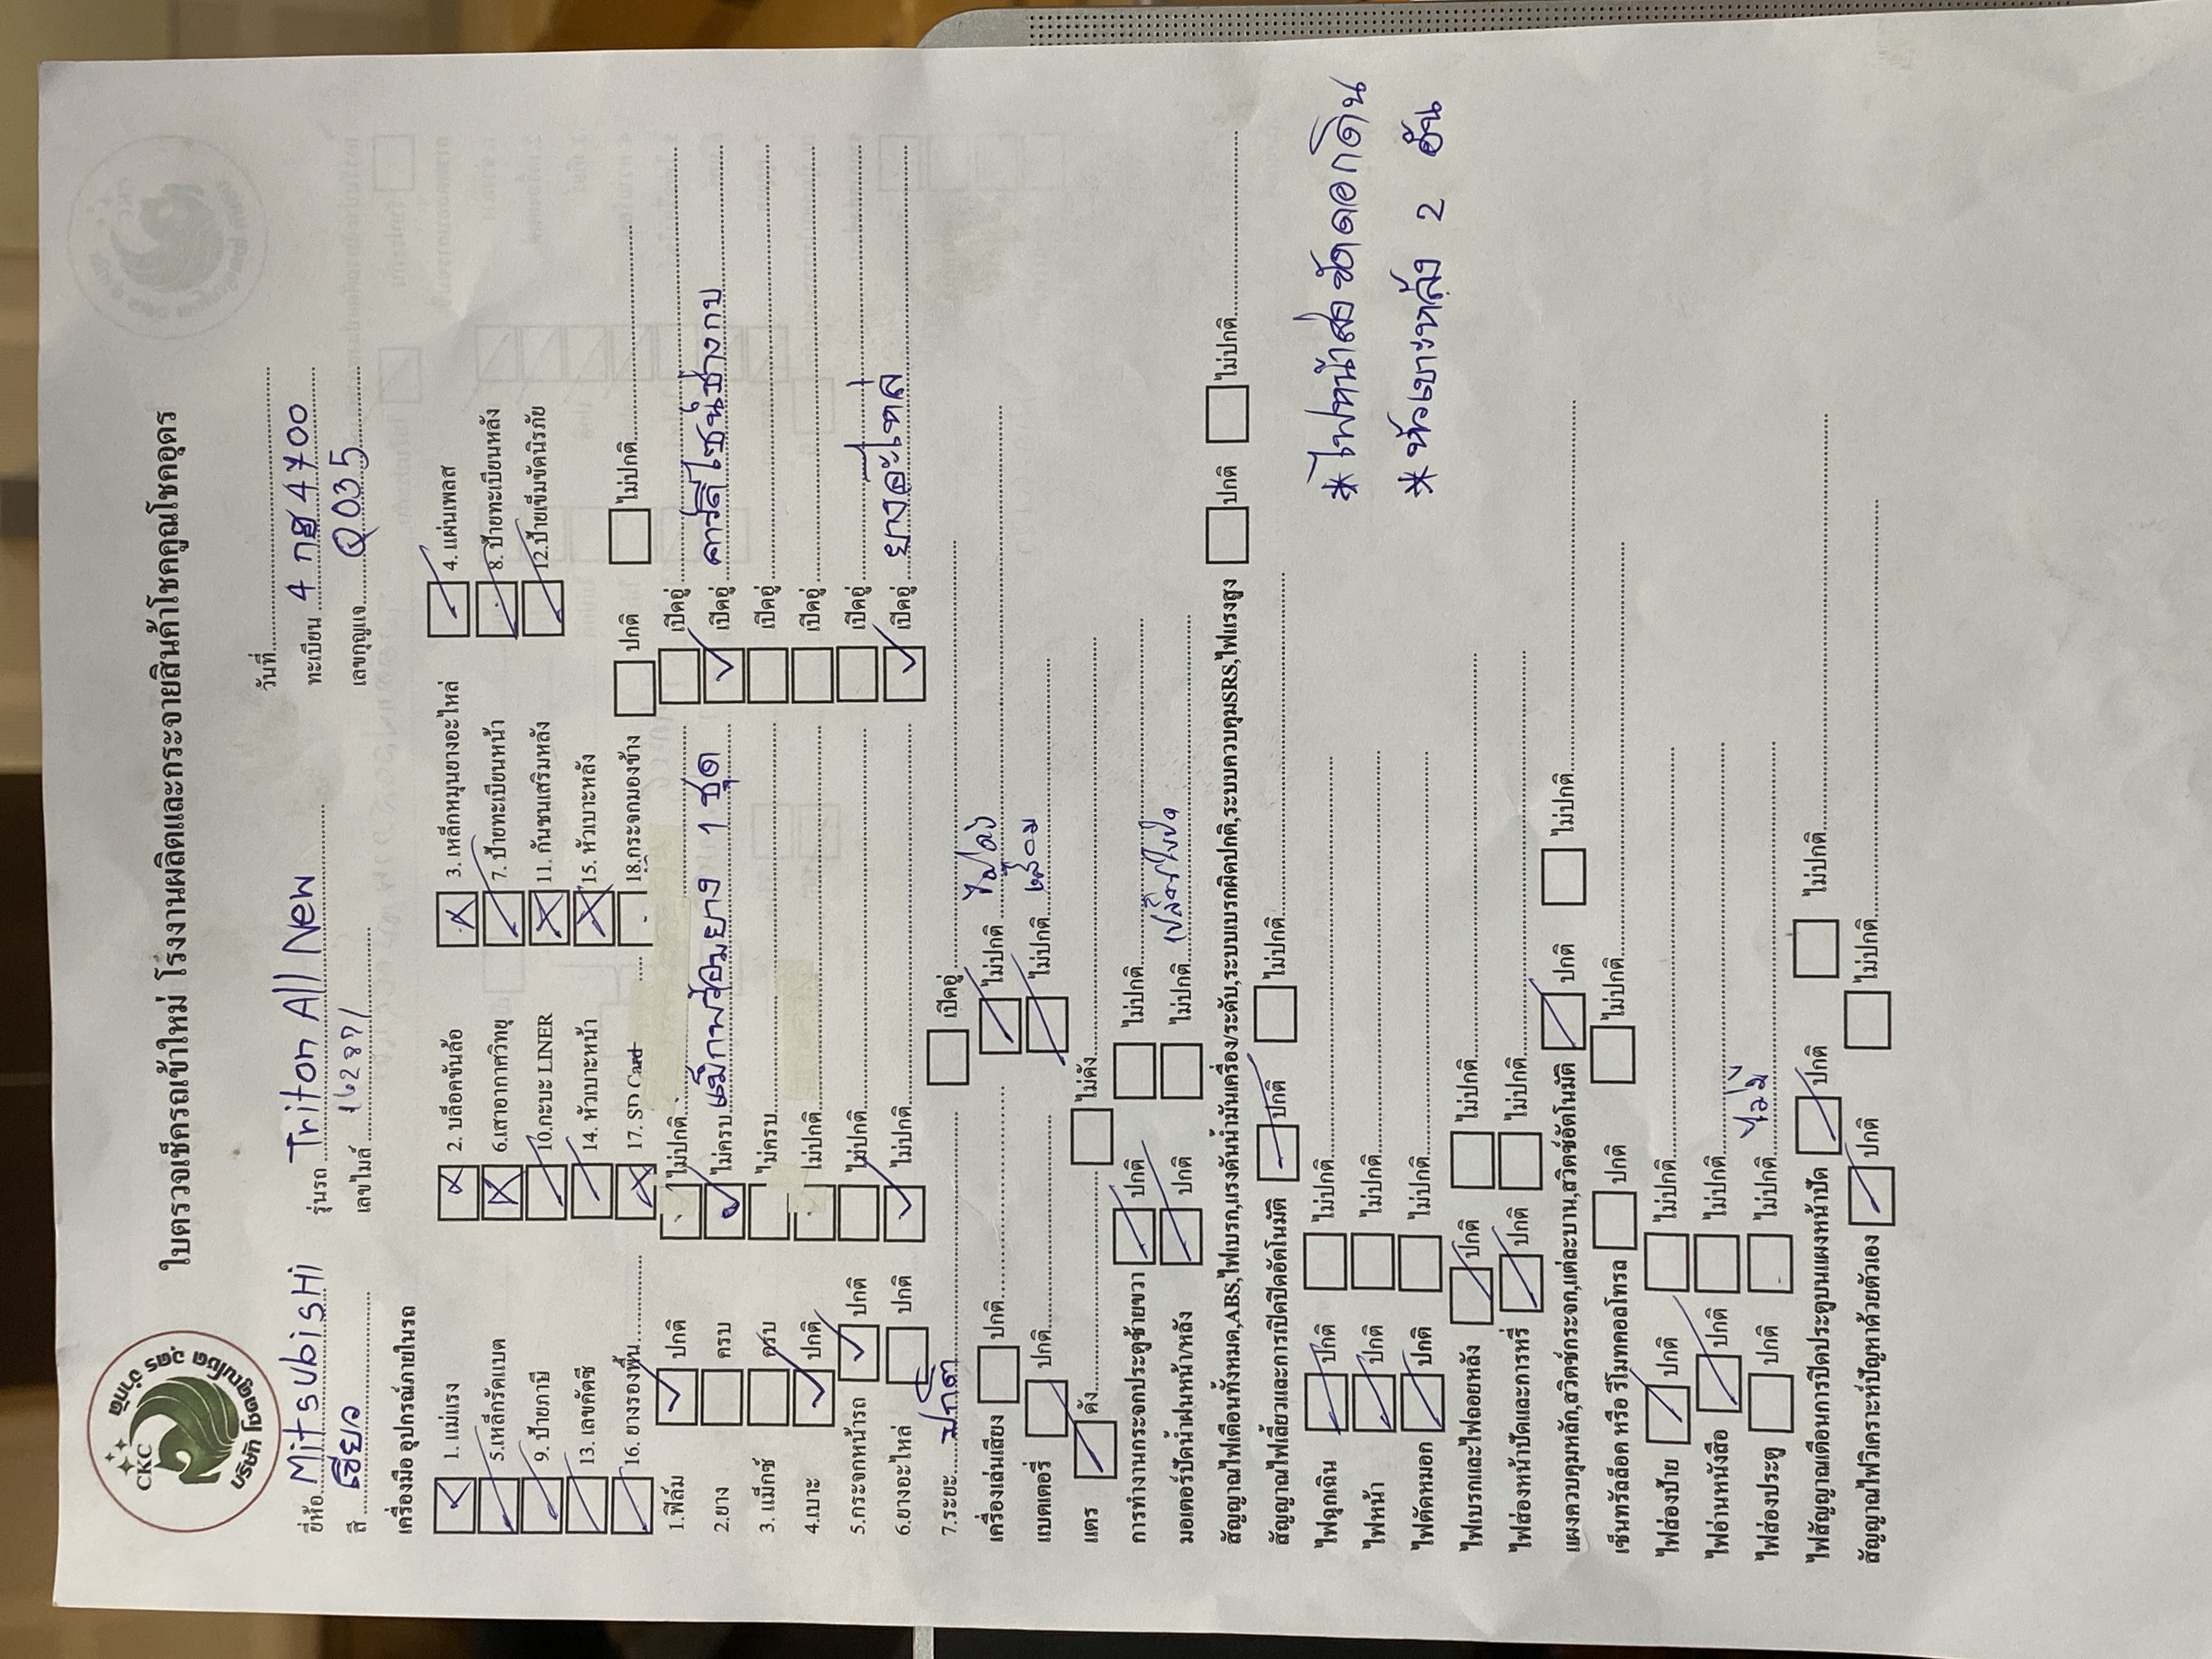 ใบตรวจเช็ครถเข้าใหม่ โรงงานผลิตและกระจายสินค้าโชคคูณโชคอุดร
CKC
บริษัท โชคคูณโชค อุดร จำกัด
วันที่
ยี่ห้อ Mitsubishi รุ่นรถ Triton All New ทะเบียน 4 กฮ 4700
สี เขียว เลขไมล์ 162871 เลขกุญแจ Q035
เครื่องมือ อุปกรณ์ภายในรถ
1. แม่แรง 2. บล็อคขันล้อ 3. เหล็กหมุนยางอะไหล่ 4. แผ่นเพลส
5.เหล็กรัดแบต 6.เสาอากาศวิทยุ 7. ป้ายทะเบียนหน้า 8. ป้ายทะเบียนหลัง
9. ป้ายภาษี 10.กะบะ LINER 11. กันชนเสริมหลัง 12.ป้ายเข็มขัดนิรภัย
13. เลขคัตซี 14. หัวเบาะหน้า 15. หัวเบาะหลัง
16. ยางรองพื้น 17. SD Card 18.กระจกมองข้าง ปกติ ไม่ปกติ
1.ฟิล์ม ปกติ ไม่ปกติ เปิดอู่
2.ยาง ครบ ไม่ครบ แม็กพร้อมยาง 1 ชุด เปิดอู่ คาร์ดีไซน์ช่างกบ
3. แม็กซ์ ครบ ไม่ครบ เปิดอู่
4.เบาะ ปกติ ไม่ปกติ เปิดอู่
5.กระจกหน้ารถ ปกติ ไม่ปกติ เปิดอู่
6.ยางอะไหล่ ปกติ ไม่ปกติ เปิดอู่ ยางอะไหล่
7.ระยะ ปกติ เปิดอู่
เครื่องเล่นเสียง ปกติ ไม่ปกติ ไม่ดัง
แบตเตอรี่ ปกติ ไม่ปกติ เสื่อม
แตร ดัง ไม่ดัง
การทำงานกระจกประตูซ้ายขวา ปกติ ไม่ปกติ
มอเตอร์ปัดน้ำฝนหน้า/หลัง ปกติ ไม่ปกติ
สัญญาณไฟเตือนทั้งหมด,ABS,ไฟเบรก,แรงดันน้ำมันเครื่อง/ระดับ,ระบบเบรกผิดปกติ,ระบบควบคุมSRS,ไฟแรงสูง ปกติ ไม่ปกติ
สัญญาณไฟเลี้ยวและการเปิดปิดอัตโนมัติ ปกติ ไม่ปกติ
ไฟฉุกเฉิน ปกติ ไม่ปกติ
ไฟหน้า ปกติ ไม่ปกติ
ไฟตัดหมอก ปกติ ไม่ปกติ
* ไฟหน้าส่อขัดดอกดิน
* หัวเบาะหลัง 2 อัน
ไฟเบรกและไฟถอยหลัง ปกติ ไม่ปกติ
ไฟส่องหน้าปัดและการหรี่ ปกติ ไม่ปกติ
แผงควบคุมหลัก,สวิตซ์กระจก,แต่ละบาน,สวิตซ์อัตโนมัติ ปกติ ไม่ปกติ
เซ็นทรัลล็อค หรือ รีโมทคอลโทรล ปกติ ไม่ปกติ
ไฟส่องป้าย ปกติ ไม่ปกติ
ไฟอ่านหนังสือ ปกติ ไม่ปกติ
ไฟส่องประตู ปกติ ไม่ปกติ ไม่มี
ไฟสัญญาณเตือนการปิดประตูบนแผงหน้าปัด ปกติ ไม่ปกติ
สัญญาณไฟวิเคราะห์ปัญหาด้วยตัวเอง ปกติ ไม่ปกติ